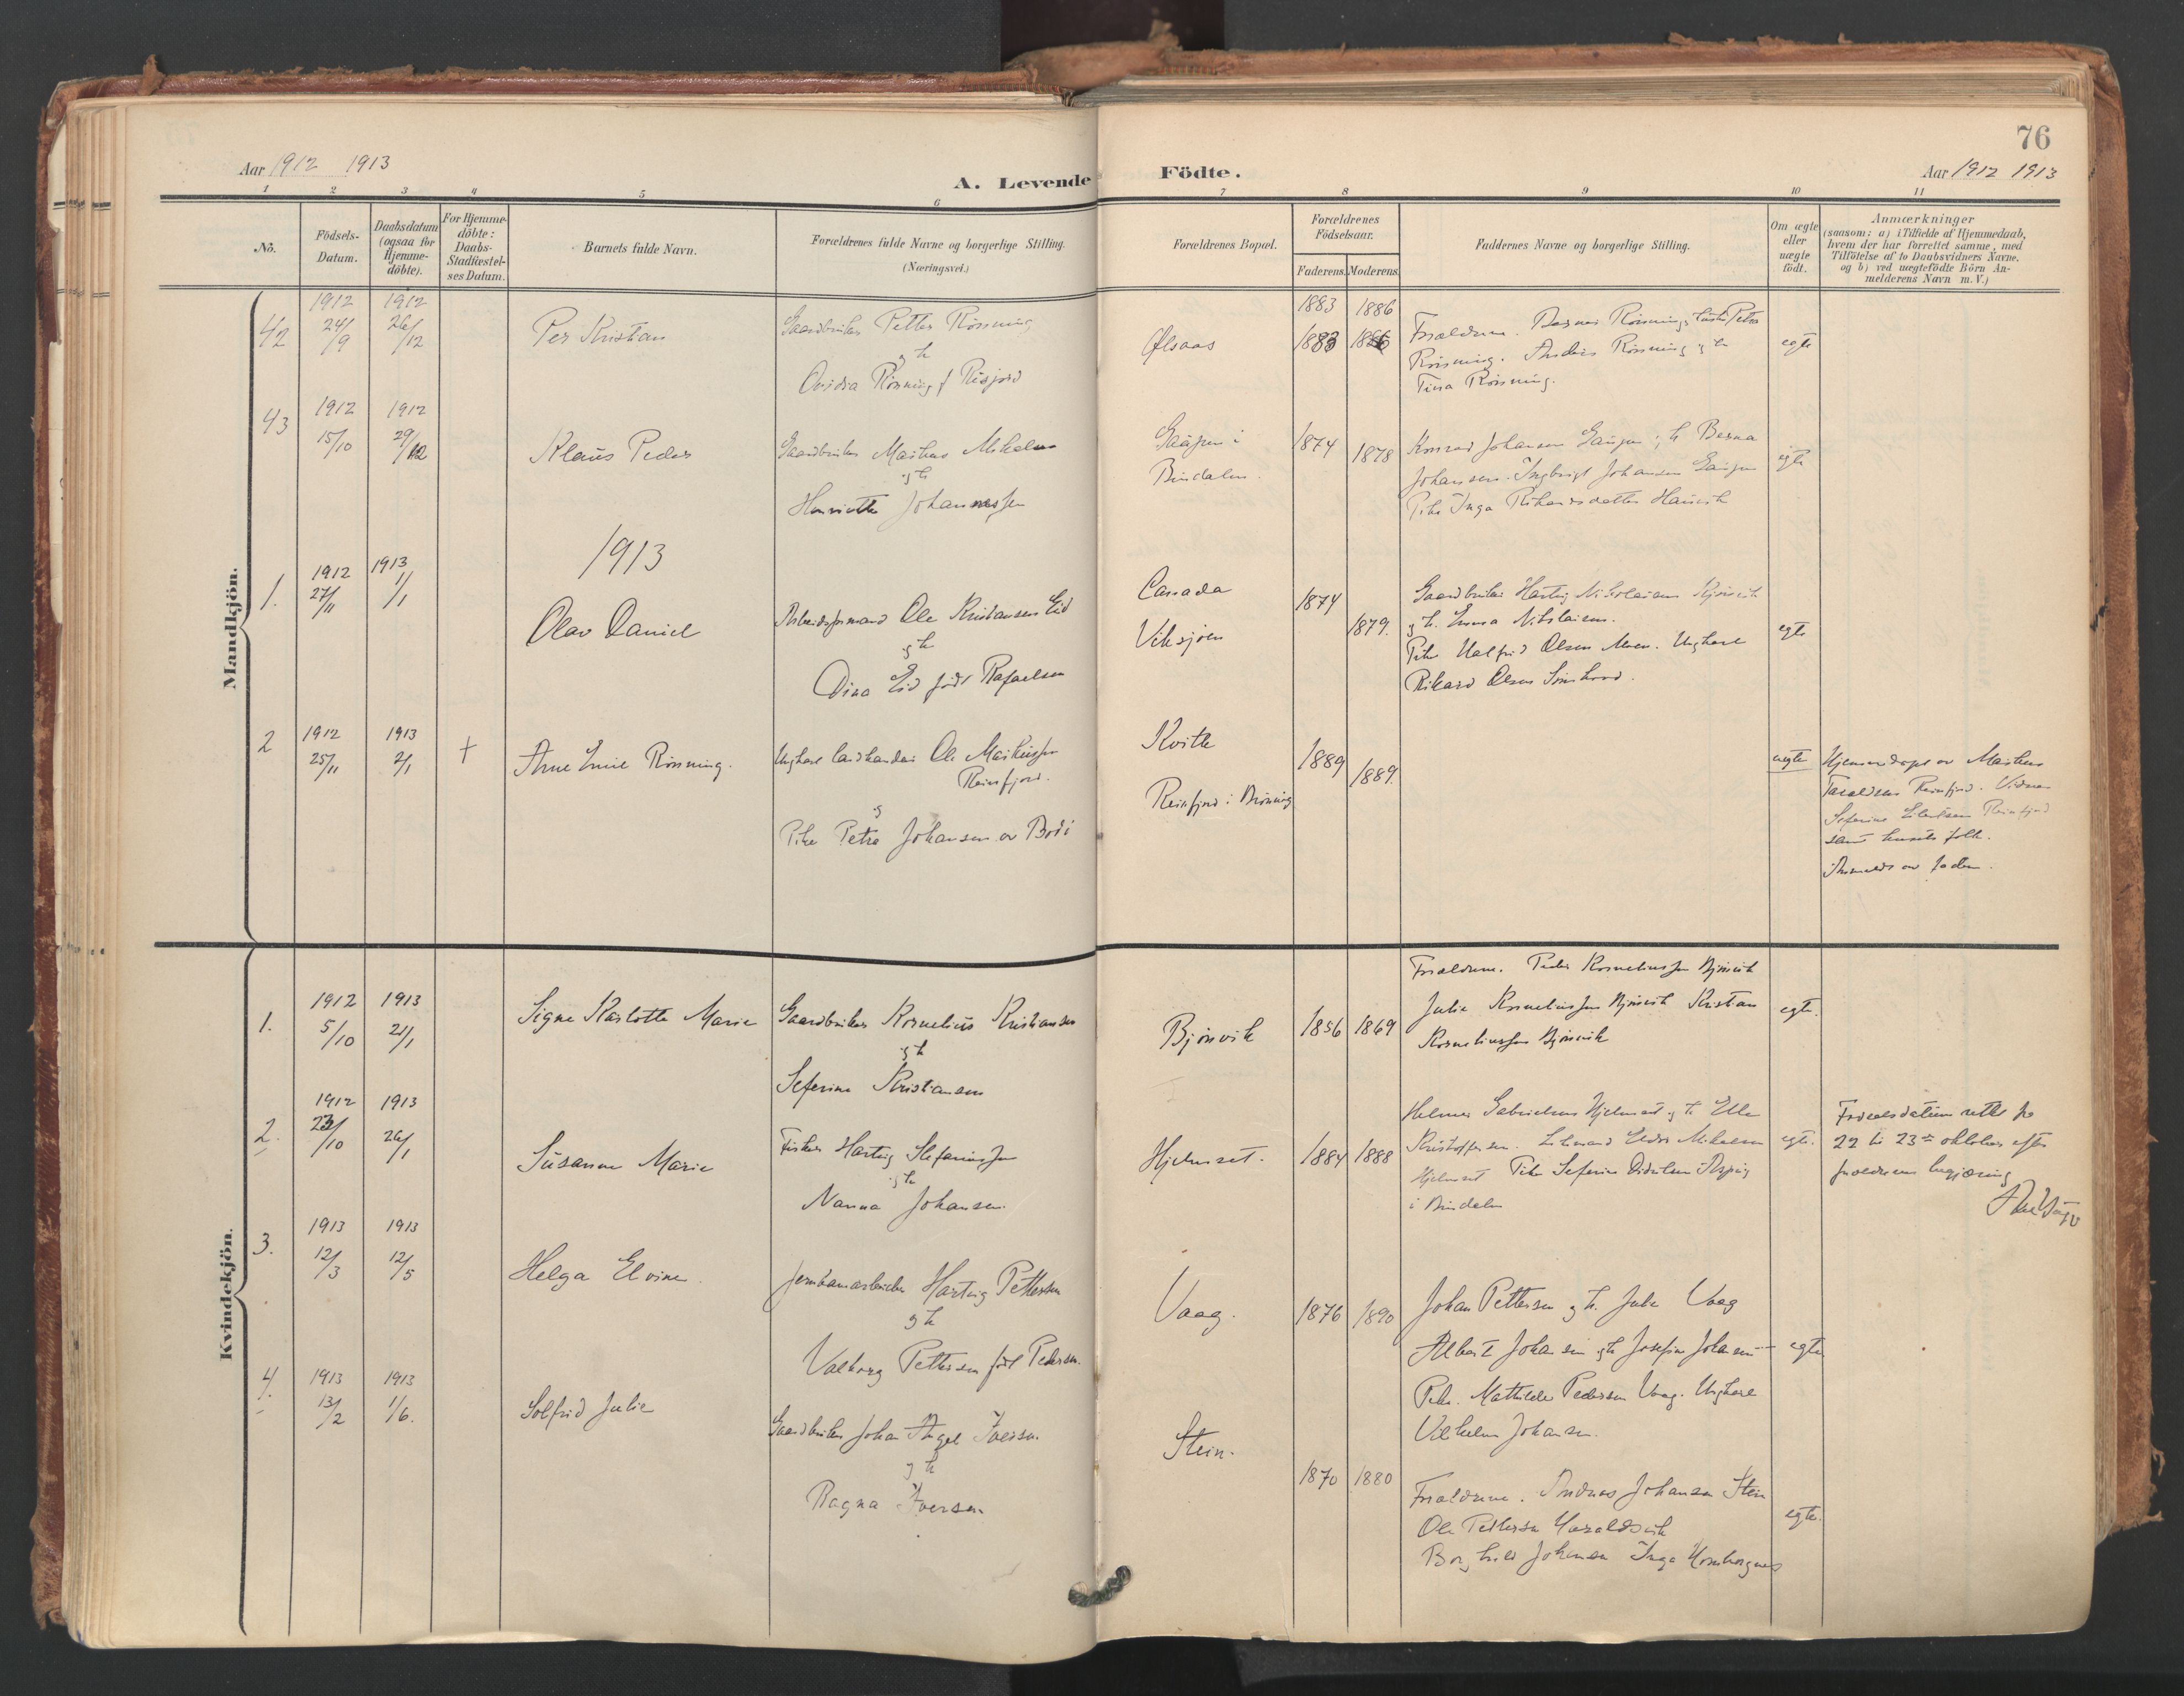 76
Aar 1912 1913
A. Levende Födte.
Aar 1912 1913
1 2 3 4 5 6 7 8 9 10 11
No.
Födsels-
Datum.
Daabsdatum
(ogsaa for
Hjemme-
döbte).
For Hjemme-
döbte:
Daabs-
Stadfæstel-
ses Datum.
Barnets fulde Navn.
Forældrenes fulde Navne og borgerlige Stilling.
(Næringsvei.)
Forældrenes Bopæl.
Forældrenes
Födselsaar.
Faderens. Moderens.
Faddernes Navne og borgerlige Stilling.
Om ægte
eller
uægte
födt.
Anmærkninger
(saasom: a) i Tilfælde af Hjemmedaab,
hvem der har forrettet samme, med
Tilföielse af to Daabsvidners Navne.
og b) ved uægtefödte Börn An-
melderens Navn m. V.)
Mandkjön.
42
1912
24/9
1912
26/12
Per Kristian
Gaardbruker Petter Rönning
g h
Rönning f Risjord
Ölsaas
1883 1886
1883 1886
Forældrene. Rönning
Rönning. Anders Rönning g h
Tina Rönning.
egte
43
1912
15/10
1912
29/12
Klaus Peder
Gaardbruker Markus Mikelsen
g h
Henriette Johannessen
i
Bindalen.
1874
1878
Konrad Johansen g h Berna
Johansen. Ingbrigt Johansen
Pike Inga
egte
1913
1.
1912
27/11
1913
1/1
Olav Daniel
Arbeidsformand Ole Kristiansen Eid
g h
Dina Eid födt Rafaelsen
Canada
Viksjöen
1874
1879.
Gaardbruker Hartvig Nikolaisen
g h. Emma Nikolaisen.
Pike Halfrid Olsen Moen. Ungkarl
Rikard Olsen
egte
2
1912
25/11
1913
2/1
+
Arne Emil Rönning.
Ungkarl landhandler Ole Markussen
Reinfjord.
g
Pike Petra Johansen av
Reinfjord i
1889
1889.
uegte
Hjemmedöpt av Markus
Reinfjord. Vidner
Seferine Reinfjord
samt husets folk.
Anmeldt av faden.
Kvindekjön.
1.
1912
5/10
1913
21/1
Signe Karlotte Marie
Gaardbruker Kornelius Kristiansen
g h
Seferine Kristiansen
Björvik
1856 1869
Forældrene. Peder Korneliussen Björvik
Julie Korneliussen Björvik Kristian
Korneliussen Björvik
egte.
2.
1912
23/10
1913
26/1
Susanne Marie
Fisker Hartvig Stefanussen
g h
Nanna Johansen.
Hjelmset.
1884 1888
Helmer Gabrielsen Hjelmset g h Elle
Kristoffersen. Peder Mikalsen
Hjelmset Pike Seferine
i Bindalen
egte.
Fodselsdatum rettet fra
22 til 23de oktober efter
forældrenes begjæring
3.
1913
12/3
1913
12/5
Helga Elvine.
Jernbanearbeider Hartvig Pettersen
g h
Valborg Pettersen födt Pedersen.
Vaag.
1876 1890
Johan Pettersen g h. Julie Vaag
Albert Johansen g h Josefine Johansen
Pike. Mathilde Pedersen Vaag. Ungkarl
Vilhelm Johansen.
egte
4.
1913
13/2
1913
1/6.
Solfrid Julie
Gaardbruker Johan Angel Iversen.
g h
Ragna Iversen
Stein.
1870 1880
Forældrene. Andreas Johansen Stein
Ole Pettersen Haraldsvik
Borghild Johansen Inga
egte.